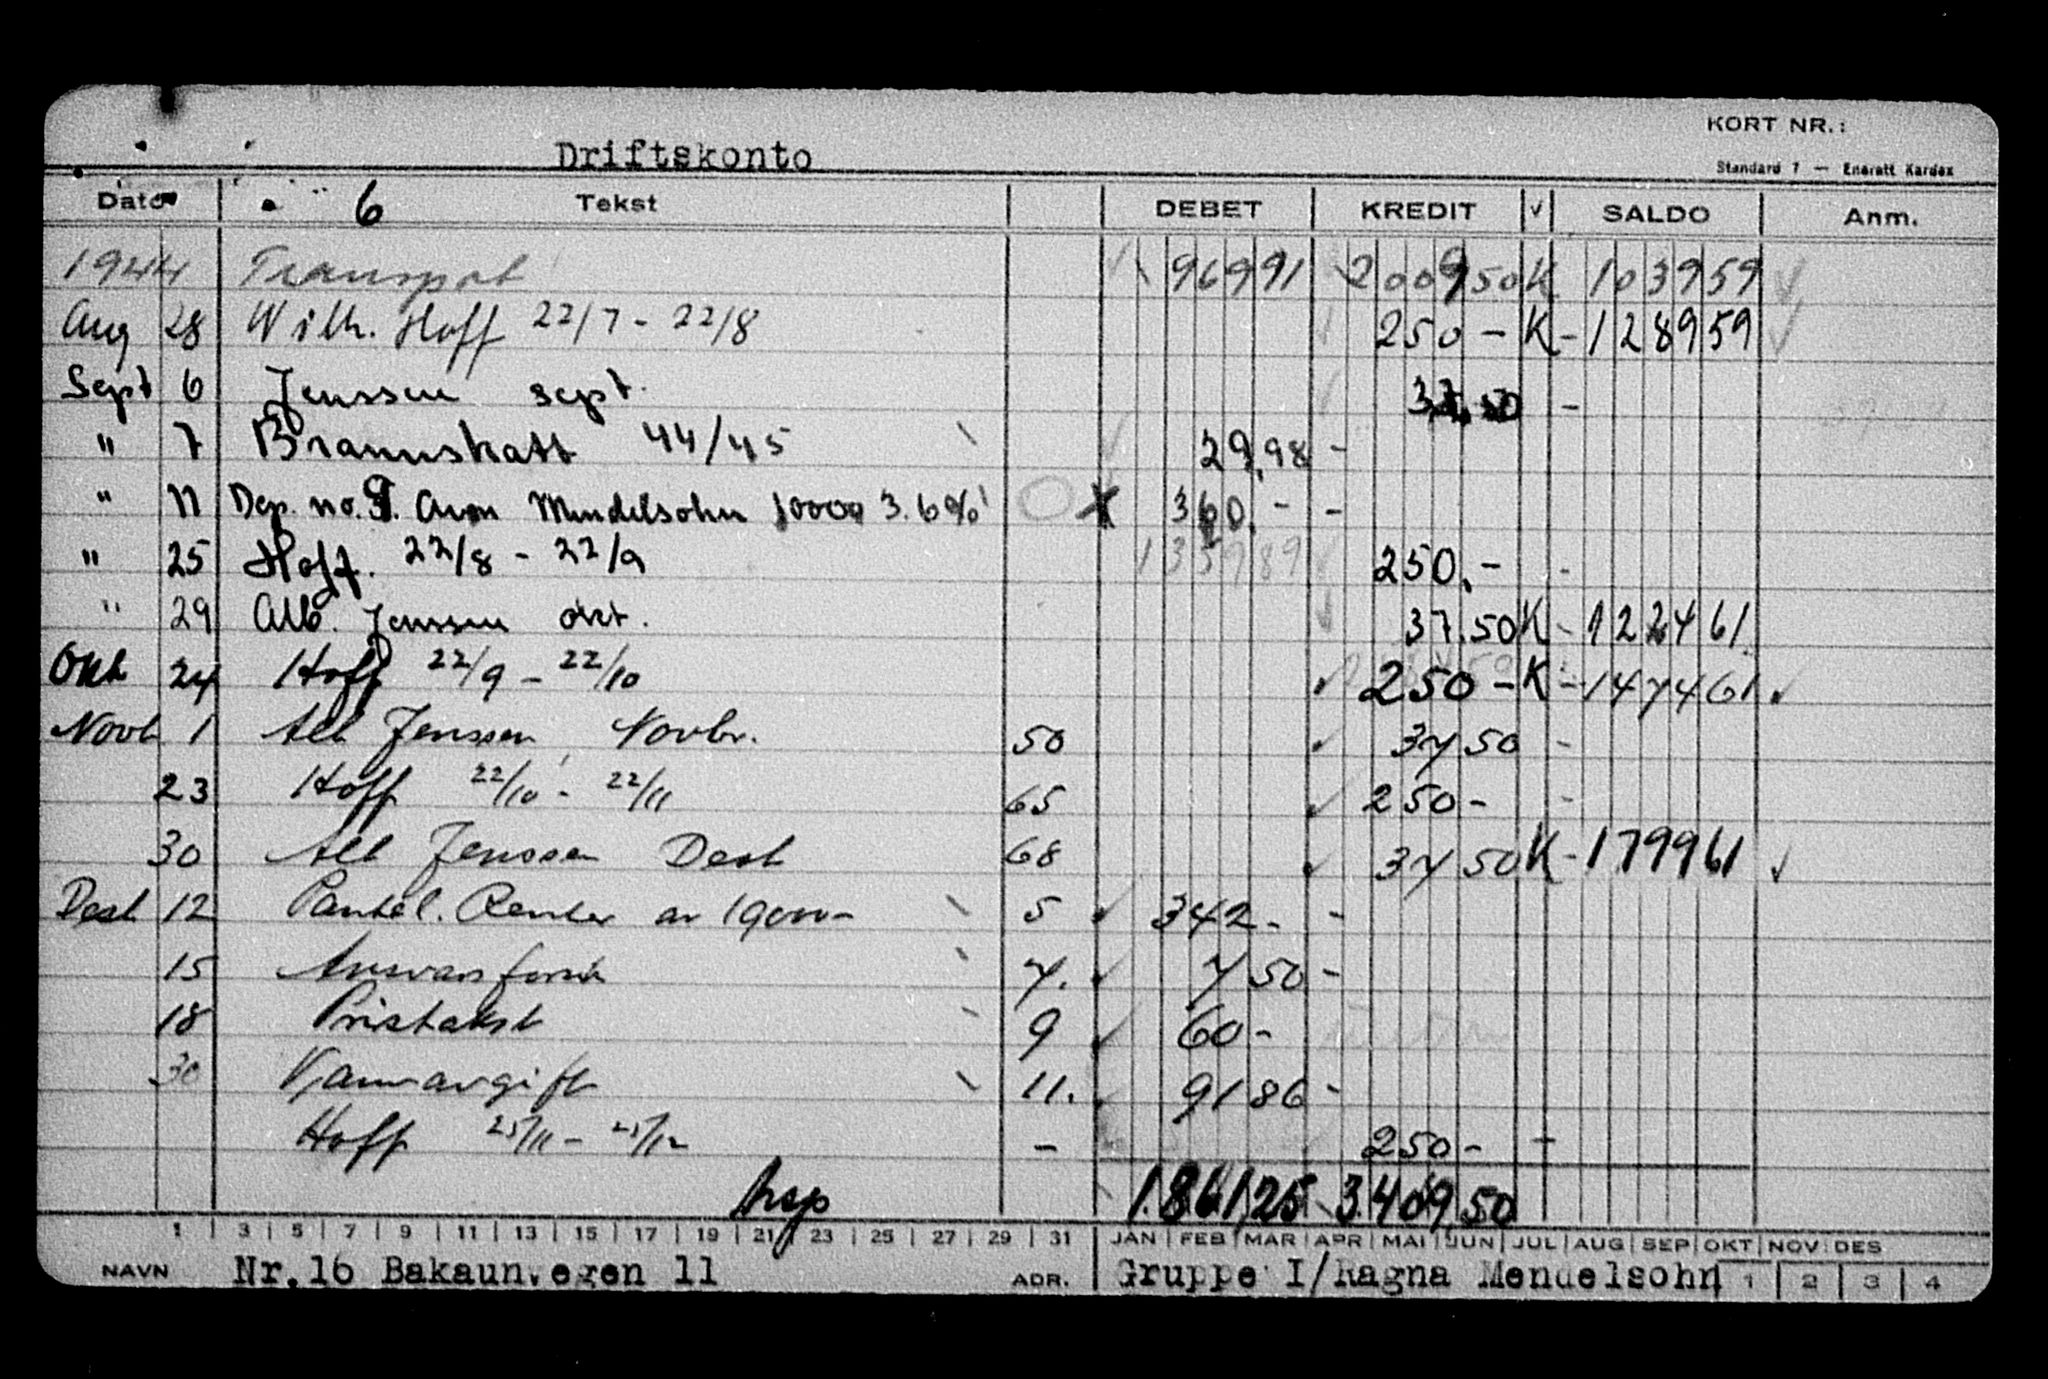 KORT NR.:
Driftskonto
Standard 7 — Enerett Kardex
Dato 6 Tekst DEBET KREDIT √ SALDO Anm.
1944 Transport 969 91 2009 50 K 1039 59
Aug 28 Wilh. Hoff 22/7 - 22/8 250 - K - 1289 59
Sept 6 Jenssen sept. 37,50 -
" 7 Brannskatt 44/45 29,98 -
" 11 Dep. no. Aron Mendelsohn 10000 3.6% 360,- -
" 25 Hoff. 22/8 - 22/9 1359 89 250,- -
" 29 Alb. Jenssen okt. 37.50 K - 1224 61
Okt 24 Hoff 22/9 - 22/10 250 - K - 1474 61
Novb 1 Alb Jenssen Novbr. 50 37 50 -
23 Hoff 22/10 - 22/11 65 250 - -
30 Alb Jenssen Desb 68 37 50 K - 1799 61
Desb 12 Pantel. Renter av 19000- 5 342 - -
15 Ansvarsforsik 7. 7 50 -
18 Pristakst 9 60 -
30 Vannavgift 11. 91 86 -
Hoff 25/11 - 25/12 - 250 - -
1.861,25 3.409,50
1 3 5 7 9 11 13 15 17 19 21 23 25 27 29 31 JAN FEB MAR APR MAI JUN JUL AUG SEP OKT NOV DES
NAVN Nr.16 Bakaunvegen 11 ADR. Gruppe I/Ragna Mendelsohn 1 2 3 4